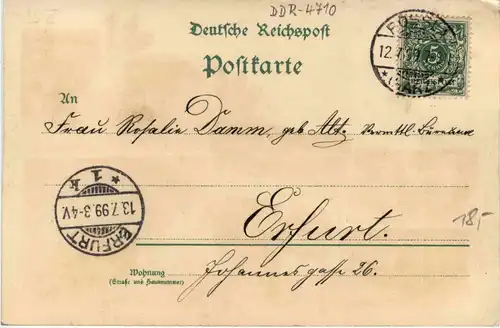 DDR-4710
Deutsche Reichspost
Postkarte
12.7.99
(HARZ)
5
An
Frau Rosalie Damm, geb. Alt. Vermittl. Bureau
* 1 k
13.7.99.3-4V.
ERFURT
Erfurt.
18,-
Wohnung
(Straße und Hausnummer)
Johannesgasse 26.